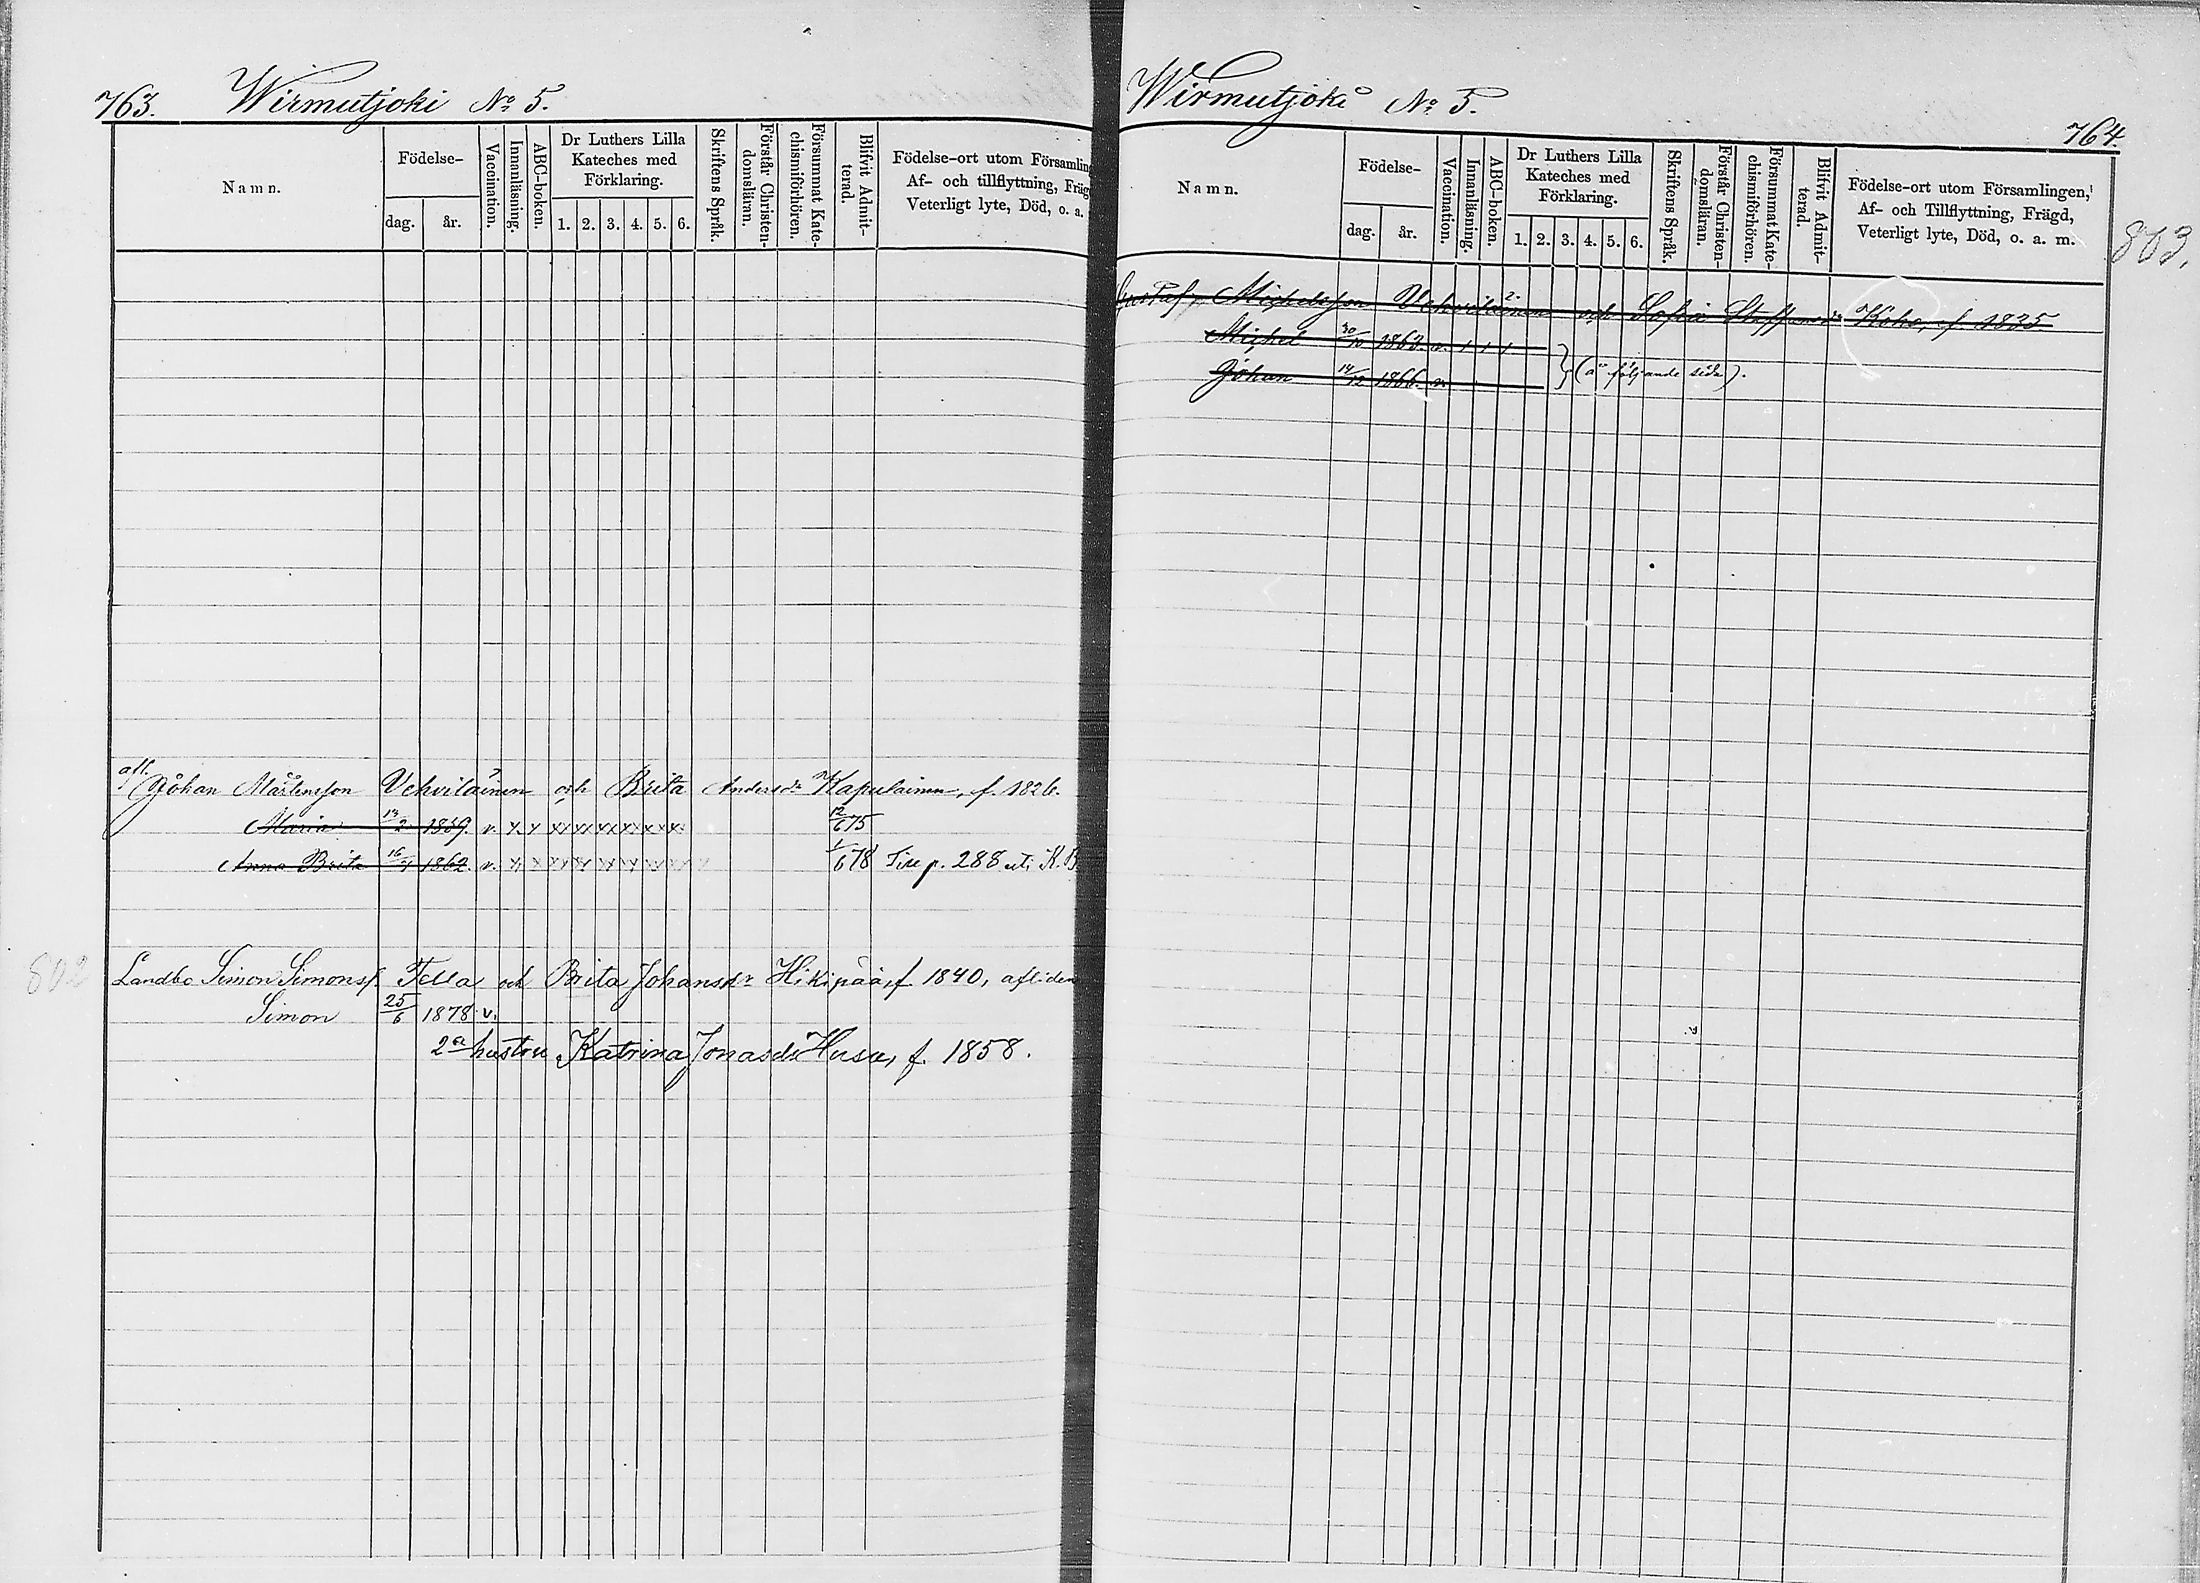 763. Wirmutjoki No 5.
Namn.
Födelse-
dag. år.
Vaccination.
Innanläsning.
ABC-boken.
Dr Luthers Lilla
Kateches med
Förklaring.
1. 2. 3. 4. 5. 6.
Skriftens Språk.
Förstår Christen-
domsläran.
Försummat Kate-
chismiförhören.
Blifvit Admit-
terad.
Födelse-ort utom Församling
Af- och tillflyttning, Fräg
Veterligt lyte, Död, o. a.
afl.
Johan Mårtensson Vehviläinen och Brita Andersdr Kapulainen, f. 1826.
Maria 13/2 1859. v. x x xx xx xx xx xx xx 12/6 75
Anna Brita 1862. v. x x xx xx xx xx xx xx 1/6 78 p. 288 uti K.B.
802
Landbo Simon Simonss. Tella och Brita Johansdr Hikipää, f. 1840, afliden
Simon 25/6 1878 v.
2a hustru Katrina Jonasdr Husu, f. 1858.
Wirmutjoki No 5.
764.
Namn.
Födelse-
dag. år.
Vaccination.
Innanläsning.
ABC-boken.
Dr Luthers Lilla
Kateches med
Förklaring.
1. 2. 3. 4. 5. 6.
Skriftens Språk.
Förstår Christen-
domsläran.
Försummat Kate-
chismiförhören.
Blifvit Admit-
terad.
Födelse-ort utom Församlingen,
Af- och Tillflyttning, Frägd,
Veterligt lyte, Död, o. a. m.
803.
Gustaf Michelsson Vehviläinen och Sofia Staffansdr Koho, f. 1835
Michel 30/10 1863. v. / / /
Johan 14/12 1866. v. } (å följande sida).